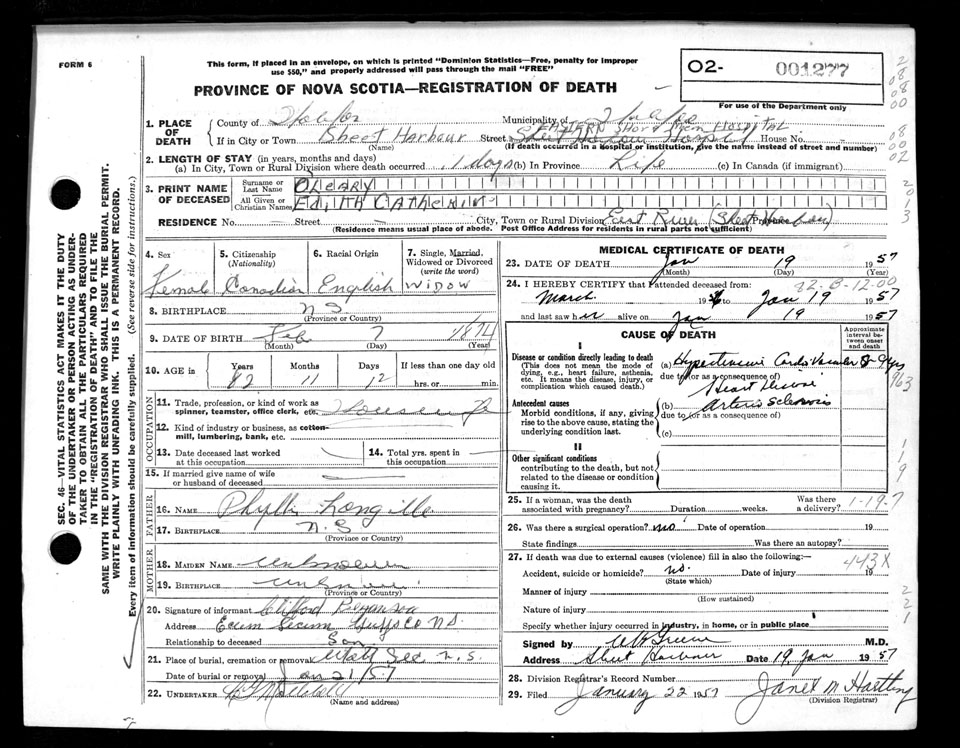 FORM 6
This form, if placed in an envelope, on which is printed "Dominion Statistics—Free, penalty for improper
use $50," and properly addressed will pass through the mail "FREE"
02- 001277
PROVINCE OF NOVA SCOTIA—REGISTRATION OF DEATH
For use of the Department only
1. PLACE OF DEATH
County of Halifax Municipality of Halifax
EASTERN SHORE Mem HOSPITAL
If in City or Town Sheet Harbour Street House No.
(Name) (If death occurred in a hospital or institution, give the name instead of street and number)
2. LENGTH OF STAY (in years, months and days)
(a) In City, Town or Rural Division where death occurred 1 days (b) In Province Life (c) In Canada (if immigrant)
3. PRINT NAME OF DECEASED
Surname or Last Name O'LEARY
All Given or Christian Names EDITH CATHERINE
RESIDENCE No. Street City, Town or Rural Division East River (Sheet Harbour) Province
(Residence means usual place of abode. Post Office Address for residents in rural parts not sufficient)
4. Sex Female
5. Citizenship (Nationality) Canadian
6. Racial Origin English
7. Single, Married, Widowed or Divorced (write the word) Widow
8. BIRTHPLACE N S
(Province or Country)
9. DATE OF BIRTH Feb 7 1874
(Month) (Day) (Year)
10. AGE in Years 82 Months 11 Days 12 If less than one day old
hrs. or min.
OCCUPATION
11. Trade, profession, or kind of work as spinner, teamster, office clerk, etc. Housewife
12. Kind of industry or business, as cotton-mill, lumbering, bank, etc.
13. Date deceased last worked at this occupation
14. Total yrs. spent in this occupation
15. If married give name of wife or husband of deceased
FATHER
16. NAME Longille
17. BIRTHPLACE N. S
(Province or Country)
MOTHER
18. MAIDEN NAME unknown
19. BIRTHPLACE unknown
(Province or Country)
20. Signature of informant Clifford
Address Ecum Secum Guys Co N.S.
Relationship to deceased Son
21. Place of burial, cremation or removal N. S.
Date of burial or removal Jan 21/57
22. UNDERTAKER
(Name and address)
MEDICAL CERTIFICATE OF DEATH
23. DATE OF DEATH Jan 19 1957
(Month) (Day) (Year)
82-B-12-00
24. I HEREBY CERTIFY that I attended deceased from:
March 19 to Jan 19 1957
and last saw her alive on Jan 19 1957
CAUSE OF DEATH
Approximate interval between onset and death
I
Disease or condition directly leading to death
(This does not mean the mode of dying, e.g., heart failure, asthenia, etc. It means the disease, injury, or complication which caused death.)
(a) Hypertensive Cardio Vascular 8-9 yrs
due to (or as a consequence of)
Heart Disease
Antecedent causes
Morbid conditions, if any, giving rise to the above cause, stating the underlying condition last.
(b) Arterio Sclerosis
due to (or as a consequence of)
(c)
II
Other significant conditions
contributing to the death, but not related to the disease or condition causing it.
25. If a woman, was the death associated with pregnancy? Duration weeks. Was there a delivery?
1-19-7
26. Was there a surgical operation? no Date of operation 19
State findings Was there an autopsy?
27. If death was due to external causes (violence) fill in also the following:—
443X
Accident, suicide or homicide? no. Date of injury 19
(State which)
Manner of injury
(How sustained)
Nature of injury
Specify whether injury occurred in industry, in home, or in public place
Signed by M.D.
Address Sheet Harbour Date 19 Jan 1957
28. Division Registrar's Record Number
29. Filed January 22 1957 Janet M Hartling
(Division Registrar)
SEC. 46—VITAL STATISTICS ACT MAKES IT THE DUTY
OF THE UNDERTAKER OR PERSON ACTING AS UNDER-
TAKER TO OBTAIN ALL THE PARTICULARS REQUIRED
IN THE "REGISTRATION OF DEATH" AND TO FILE THE
SAME WITH THE DIVISION REGISTRAR WHO SHALL ISSUE THE BURIAL PERMIT.
WRITE PLAINLY WITH UNFADING INK. THIS IS A PERMANENT RECORD.
Every item of information should be carefully supplied. (See reverse side for instructions.)